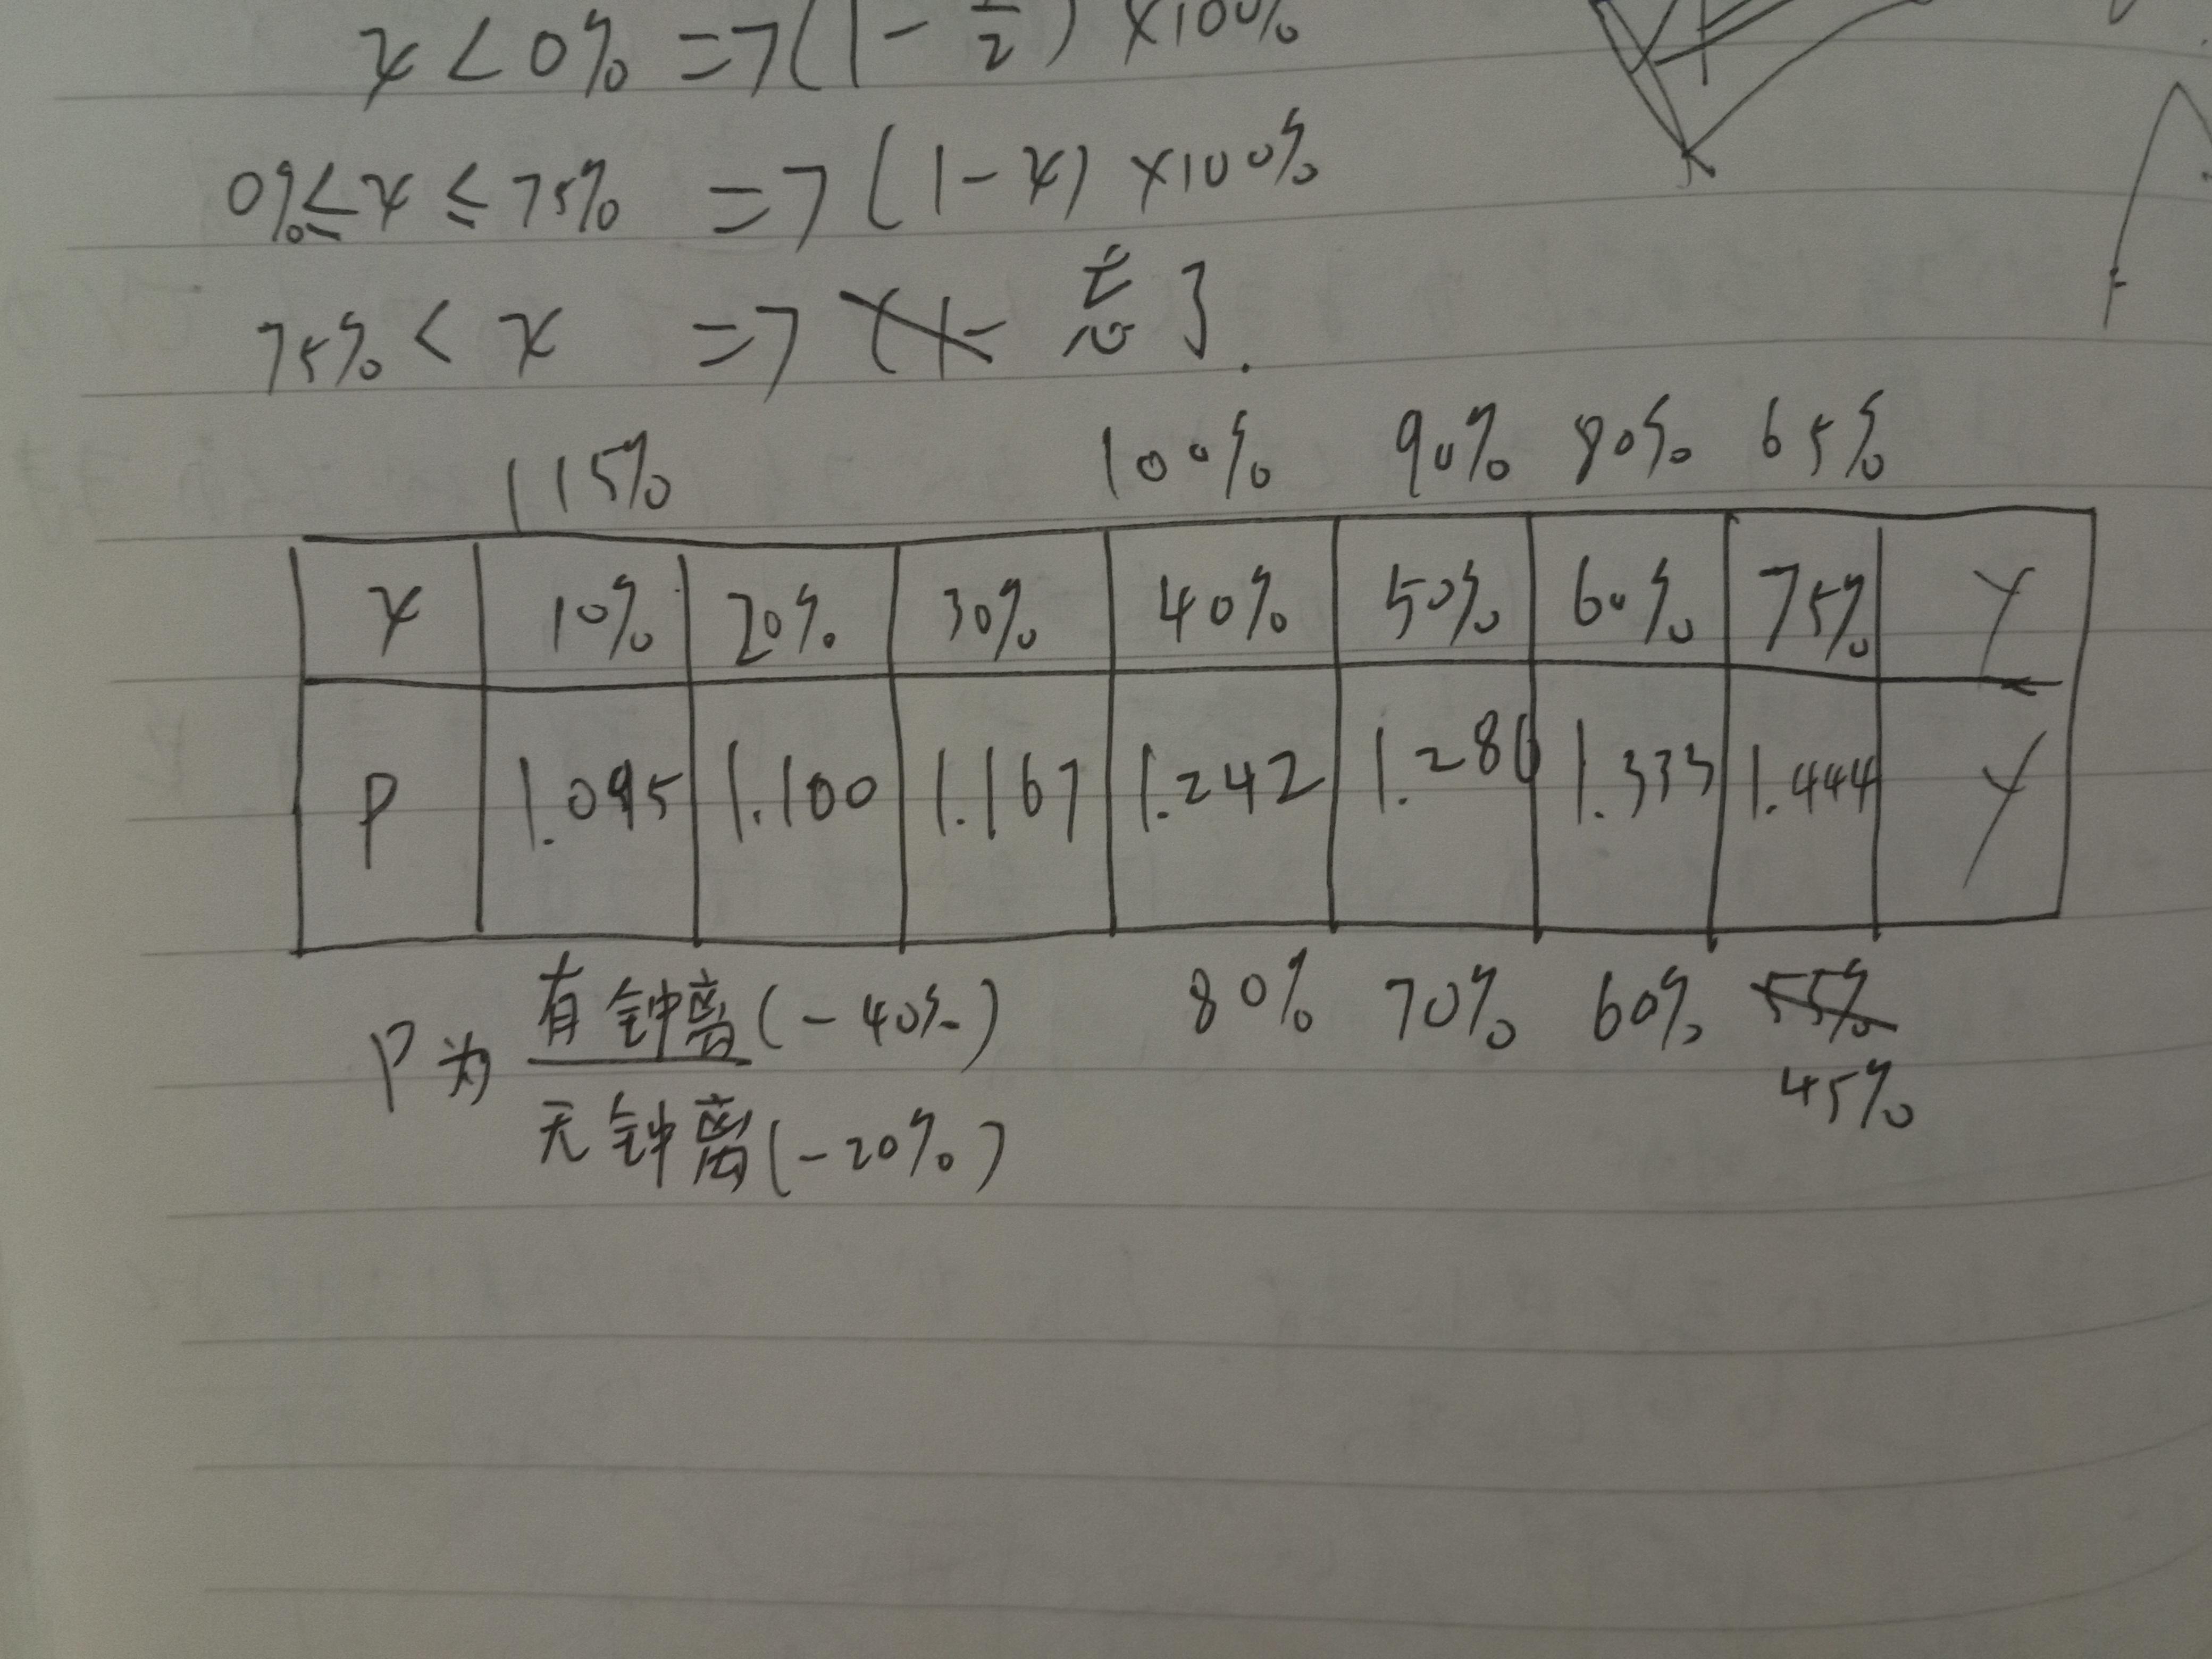 x < 0% => (1 - x/2) ×100%
0% ≤ x ≤ 75% => (1-x) ×100%
75% < x => 忘了.
115% 100% 90% 80% 65%
x 10% 20% 30% 40% 50% 60% 75% Y
P 1.095 1.100 1.167 1.242 1.286 1.333 1.444 Y
80% 70% 60% 55%
45%
P为 有钟离(-40%)
无钟离(-20%)